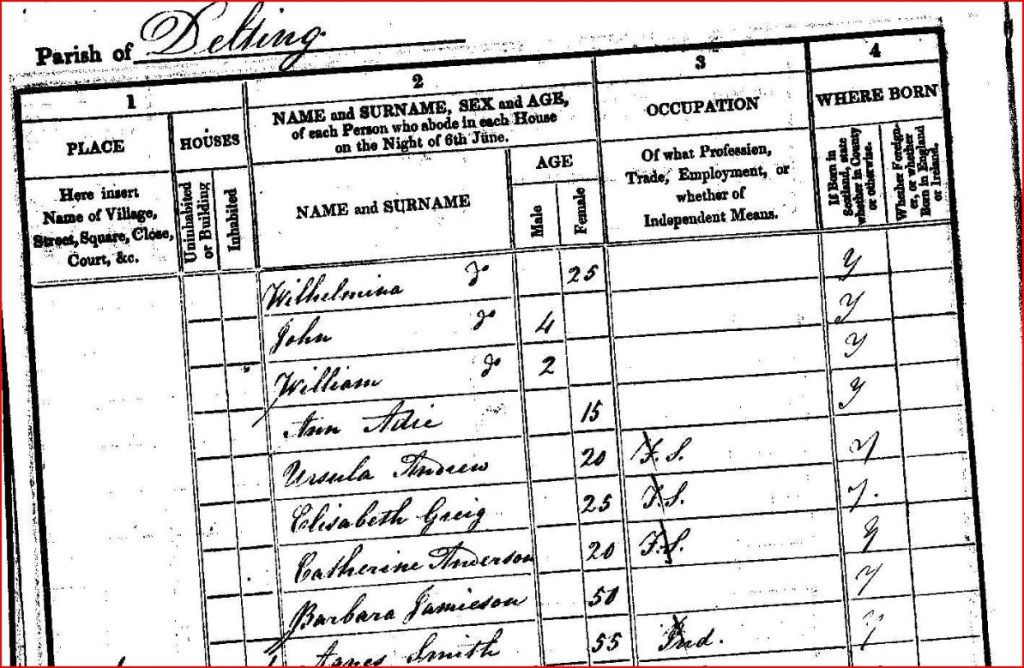 Parish of Delting
1 2 3 4
PLACE HOUSES NAME and SURNAME, SEX and AGE, of each Person who abode in each House on the Night of 6th June. OCCUPATION WHERE BORN
Here insert Name of Village, Street, Square, Close, Court, &c. Uninhabited or Building Inhabited NAME and SURNAME AGE Male Female Of what Profession, Trade, Employment, or whether of Independent Means. If Born in Scotland, state whether in County or otherwise. Whether Foreigner, or whether Born in England or Ireland.
Wilhelmina do 25 y
John do 4 y
William do 2 y
Ann Adie 15 y
Ursula Andrew 20 F.S. y
Elisabeth Greig 25 F.S. y
Catherine Anderson 20 F.S. y
Barbara Jamieson 50 y
Agnes Smith 55 Ind. y